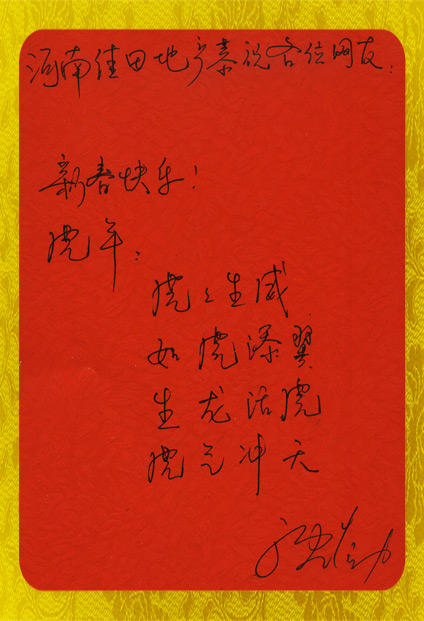 河南佳田地产恭祝各位网友：
新春快乐！
虎年：
虎虎生威
如虎添翼
生龙活虎
虎气冲天